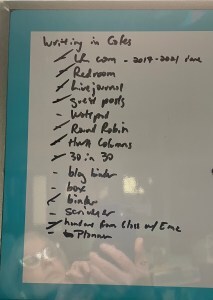 Writing in Cafes
✓ com - 2017-2021 done
✓ Redroom
✓ Livejournal
✓ guest posts
- wattpad
✓ Round Robin
✓ Columns
✓ 30 in 30
- blog binder
- box
✓ binder
- Scrivener
✓ from Class w/
- Planner